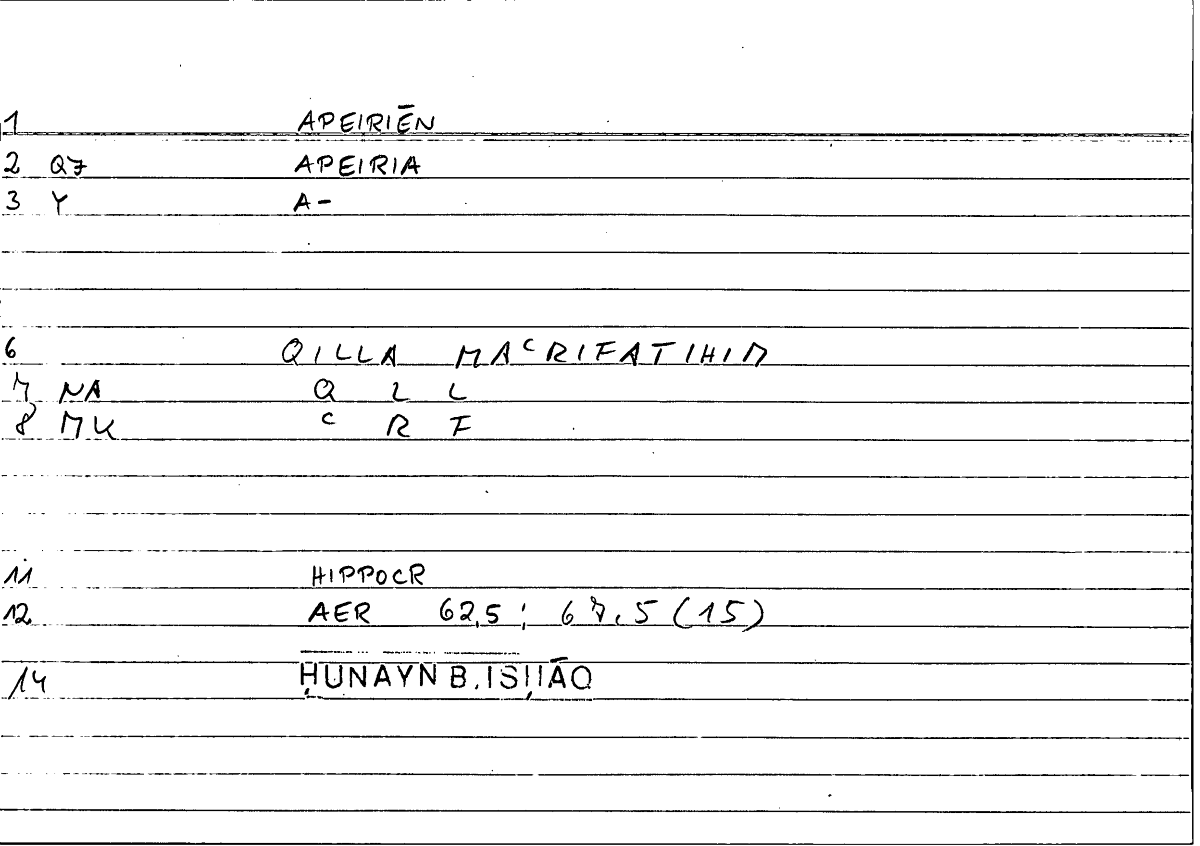 1 APEIRIĒN
2 Q7 APEIRIA
3 Y A-
6 QILLA MAᶜRIFATIHIM
7 NA Q L L
8 MK ᶜ R F
11 HIPPOCR
12 AER 62,5; 67,5 (15)
14 ḤUNAYN B. ISḤĀQ